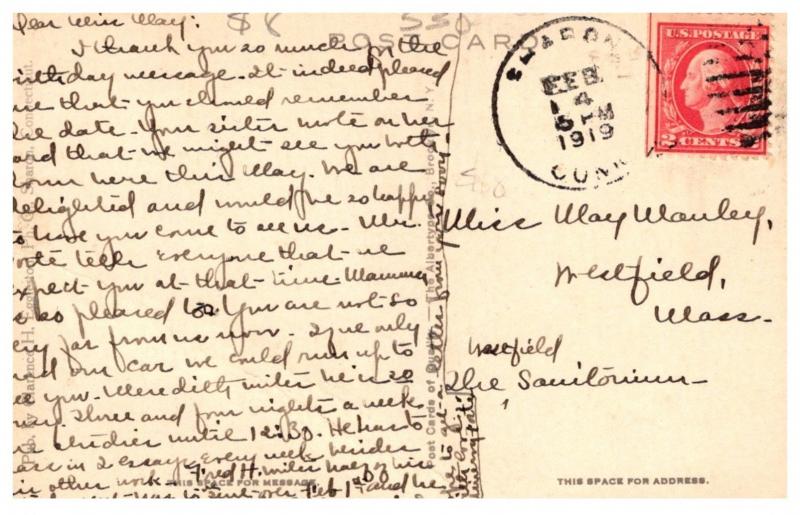 Dear Miss May:
I thank you so much for the
birthday message. It indeed pleased
me that you should remember
the date. Your sister wrote
and that we might see you both
down here this May. We are
delighted and would be so happy
to have you come to see us. Mr.
tells everyone that we
expect you at that time. Mamma
is so pleased too. You are not so
very far from us now. If we only
had our car we could run up to
see you. Meredith writes he is so
busy. Three and four nights a week
he studies until 12:30. He has to
pass in 2 essays every week besides
his other work. Fred H. writes
over Feb 1st and he
letter from you
$8
POST CARD
Pub. by Clarence H. Eggleston, P. O., Sharon, Connecticut.
Post Cards of Quality. — The Albertype Co., Brooklyn, N. Y.
THIS SPACE FOR MESSAGE.
SHARON
FEB
4
5 PM
1919
CONN.
U.S. POSTAGE
2 CENTS 2
Miss May Manley,
Westfield,
Mass.
Westfield
The Sanitorium
THIS SPACE FOR ADDRESS.